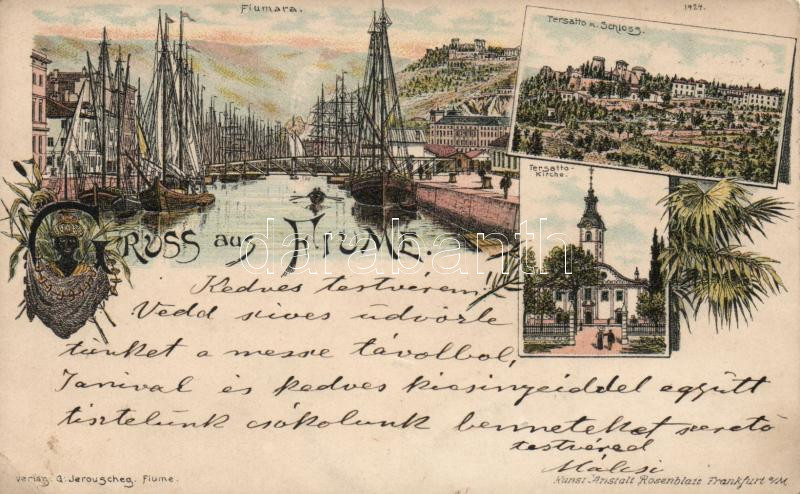 Fiumara.
1424.
Tersatto m. Schloss.
Tersatto-
Kirche.
GRUSS aus FIUME.
darabanth
Kedves testvérem!
Vedd szives üdvözle
tünket a messe távolból,
Janival és kedves kicsinyeiddel együtt
tisztelünk csókolunk benneteket szerető
testvéred
Málcsi
Verlag: G. Jerouscheg. Fiume.
Kunst-Anstalt Rosenblatt Frankfurt a/M.